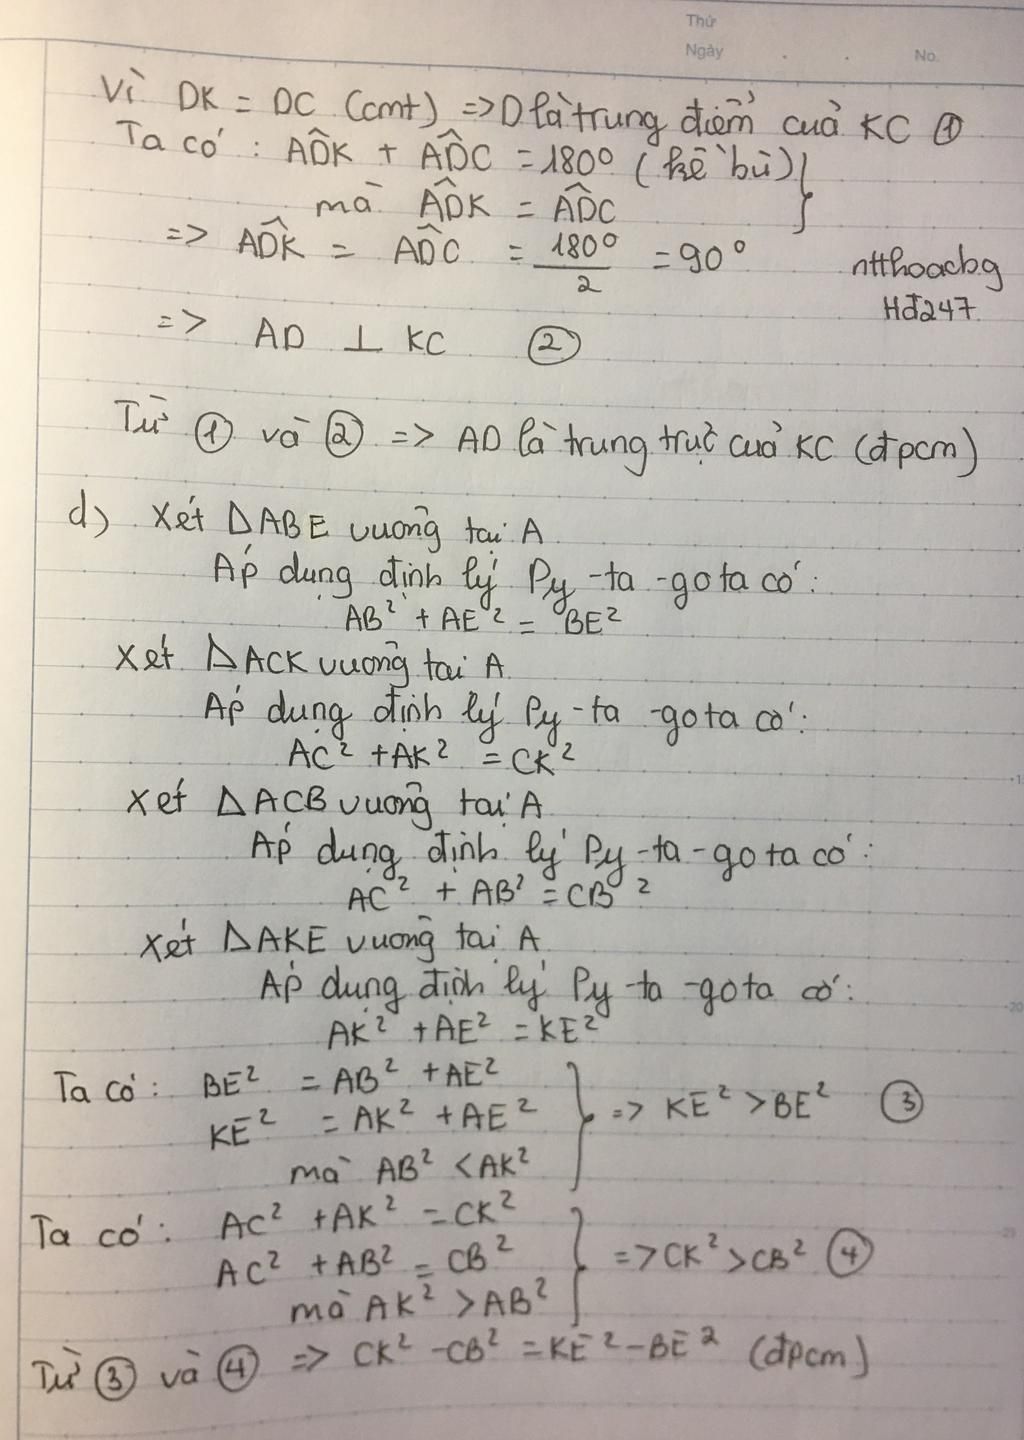 Thứ
Ngày . . No.
Vì DK = DC (cmt) => D là trung điểm của KC ①
Ta có : ADK̂ + ADĈ = 180° (kề bù) }
mà ADK̂ = ADĈ
=> ADK̂ = ADĈ = 180°/2 = 90°
ntthoacbg
Hđ247
=> AD ⊥ KC ②
Từ ① và ② => AD là trung trực của KC (đpcm)
d) Xét ΔABE vuông tại A
Áp dụng định lý Py-ta-go ta có :
AB² + AE² = BE²
Xét ΔACK vuông tại A
Áp dụng định lý Py-ta-go ta có :
AC² + AK² = CK²
Xét ΔACB vuông tại A
Áp dụng định lý Py-ta-go ta có :
AC² + AB² = CB²
Xét ΔAKE vuông tại A
Áp dụng định lý Py-ta-go ta có :
AK² + AE² = KE²
Ta có : BE² = AB² + AE²
KE² = AK² + AE² } => KE² > BE² ③
mà AB² < AK²
Ta có : AC² + AK² = CK²
AC² + AB² = CB² } => CK² > CB² ④
mà AK² > AB²
Từ ③ và ④ => CK² - CB² = KE² - BE² (đpcm)